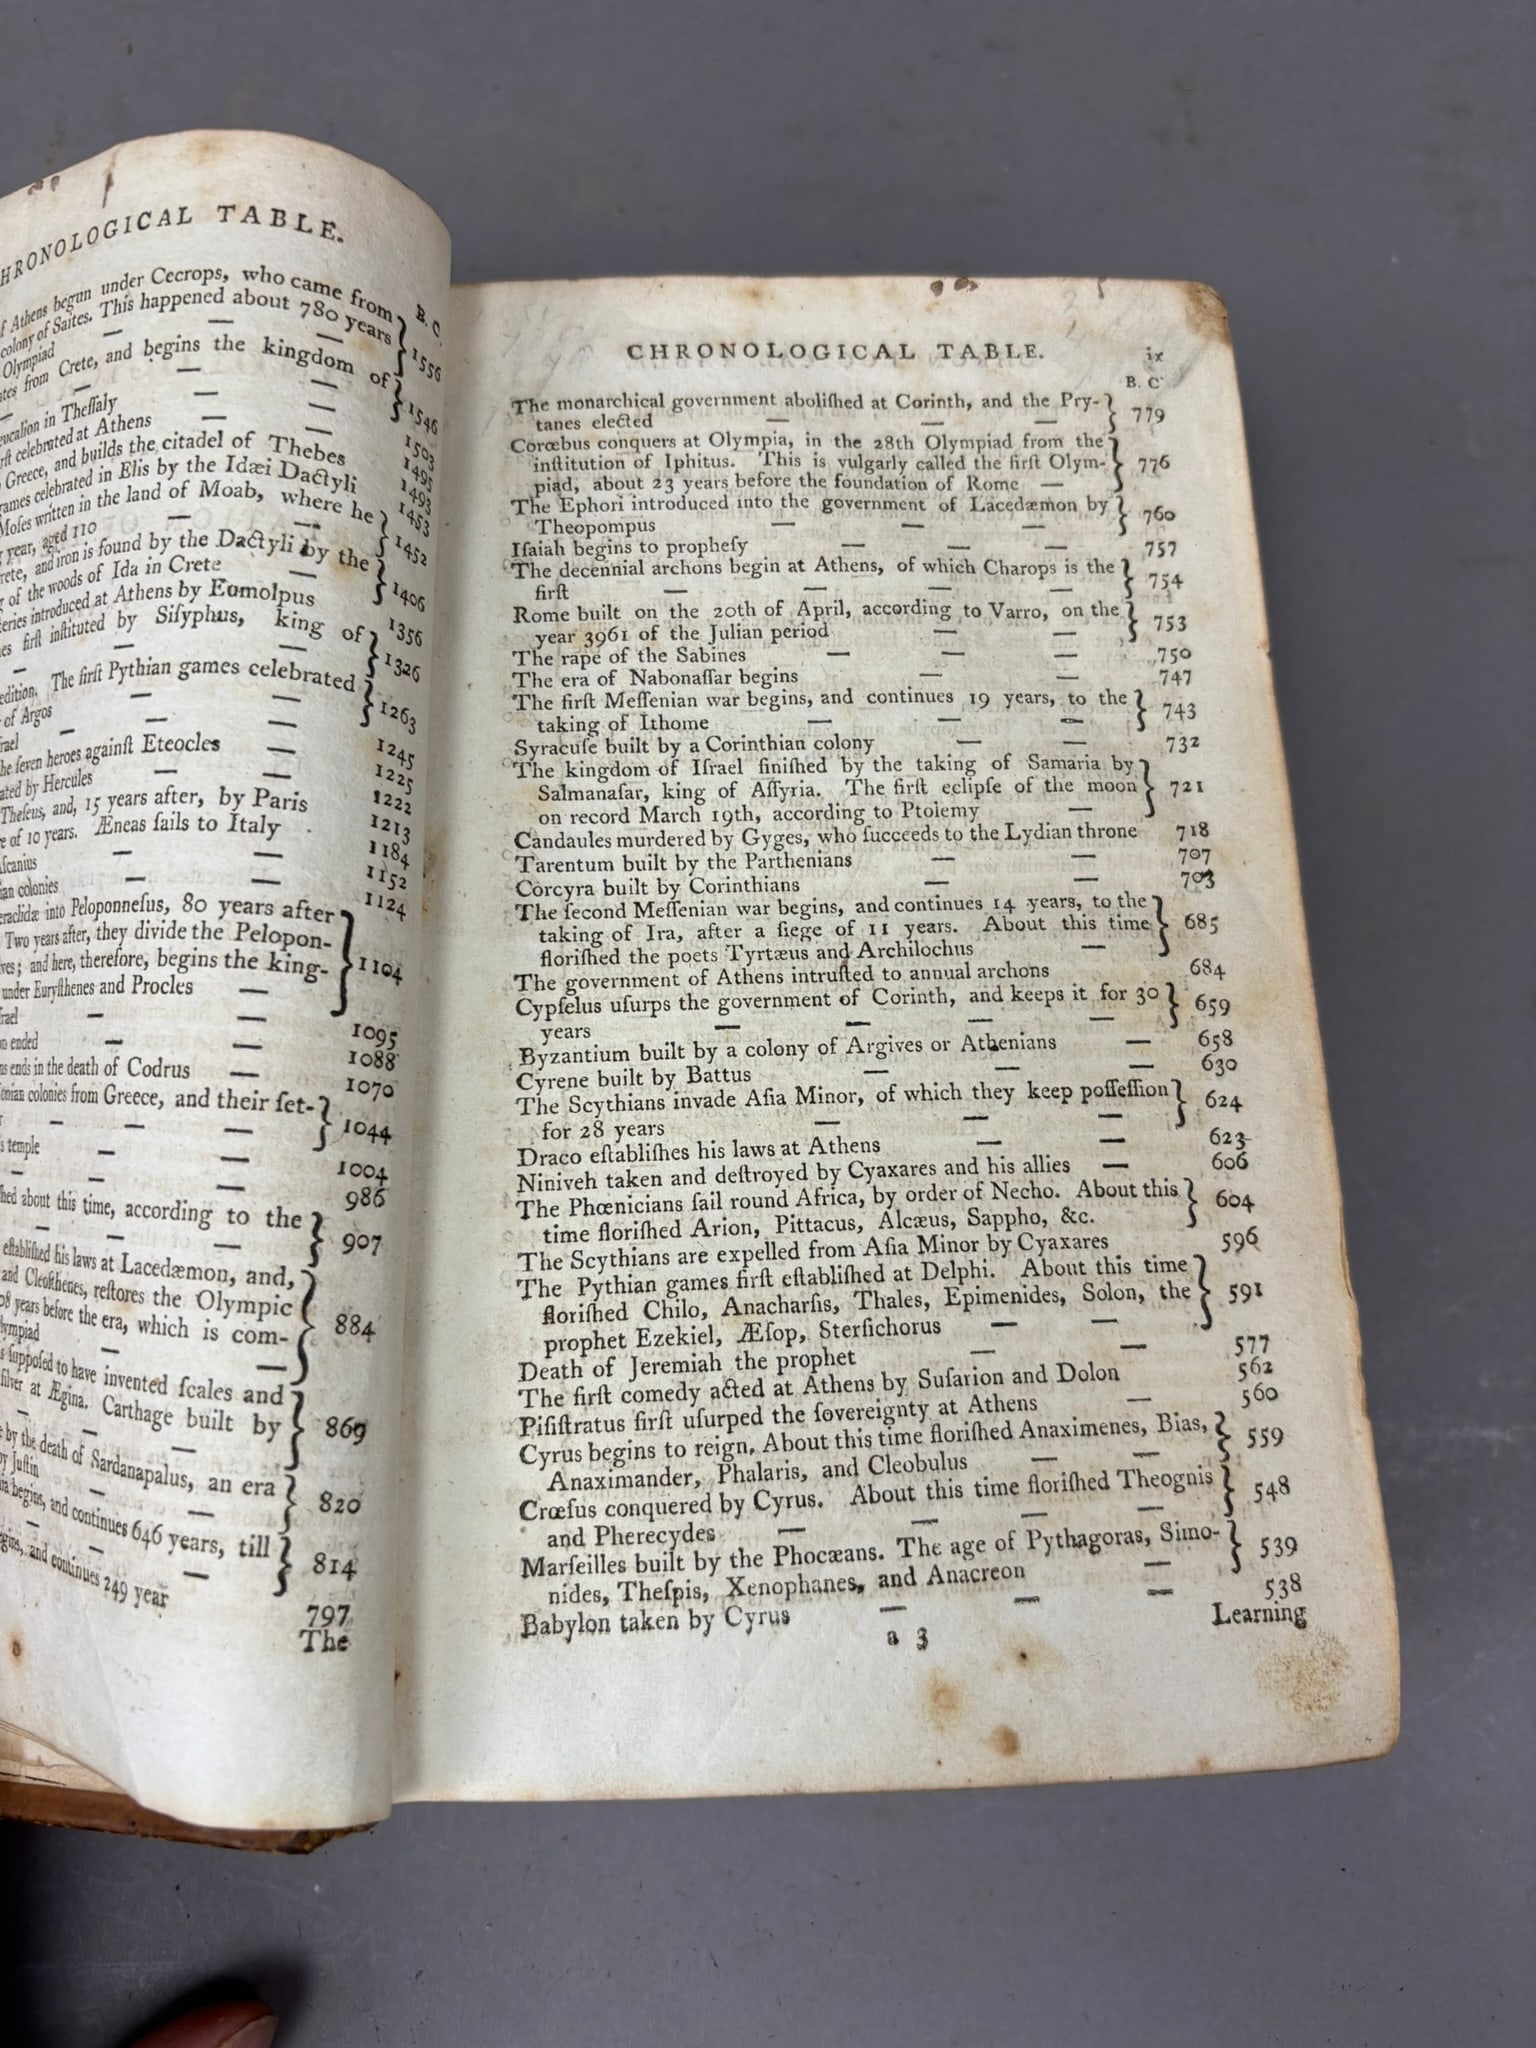 HRONOLOGICAL TABLE.
B. C.
f Athens begun under Cecrops, who came from
colony of Saites. This happened about 780 years } 1556
Olympiad — — —
tes from Crete, and begins the kingdom of } 1546
— — — —
eucalion in Theſſaly — — 1503
rſt celebrated at Athens — 1495
Greece, and builds the citadel of Thebes 1493
games celebrated in Elis by the Idæi Dactyli 1453
Moſes written in the land of Moab, where he } 1452
year, aged 110 — —
rete, and iron is found by the Dactyli by the } 1406
of the woods of Ida in Crete —
teries introduced at Athens by Eumolpus 1356
es firſt inſtituted by Siſyphus, king of } 1326
— — —
edition. The firſt Pythian games celebrated } 1263
of Argos — —
rael — — — 1245
he ſeven heroes againſt Eteocles — 1225
ated by Hercules — — 1222
Theſeus, and, 15 years after, by Paris 1213
e of 10 years. Æneas ſails to Italy 1184
Aſcanius — — 1152
ian colonies — — 1124
eraclidæ into Peloponneſus, 80 years after
Two years after, they divide the Pelopon-
ves; and here, therefore, begins the king- } 1104
under Euryſthenes and Procles —
rael — — 1095
on ended — — 1088
ns ends in the death of Codrus — 1070
onian colonies from Greece, and their ſet- } 1044
— — —
s temple — — 1004
— — 986
ſhed about this time, according to the } 907
— — —
eſtabliſhed his laws at Lacedæmon, and,
and Cleoſthenes, reſtores the Olympic
08 years before the era, which is com- } 884
lympiad — —
s ſuppoſed to have invented ſcales and
ſilver at Ægina. Carthage built by } 869
— — —
e by the death of Sardanapalus, an era } 820
by Juſtin — —
begins, and continues 646 years, till } 814
— — —
egins, and continues 249 year 797
The
CHRONOLOGICAL TABLE. ix
B. C
The monarchical government aboliſhed at Corinth, and the Pry- } 779
tanes elected — — —
Corœbus conquers at Olympia, in the 28th Olympiad from the
inſtitution of Iphitus. This is vulgarly called the firſt Olym- } 776
piad, about 23 years before the foundation of Rome —
The Ephori introduced into the government of Lacedæmon by } 760
Theopompus — — —
Iſaiah begins to propheſy — — — 757
The decennial archons begin at Athens, of which Charops is the } 754
firſt — — — —
Rome built on the 20th of April, according to Varro, on the } 753
year 3961 of the Julian period — —
The rape of the Sabines — — — 750
The era of Nabonaſſar begins — — 747
The firſt Meſſenian war begins, and continues 19 years, to the } 743
taking of Ithome — — —
Syracuſe built by a Corinthian colony — — 732
The kingdom of Iſrael finiſhed by the taking of Samaria by
Salmanaſar, king of Aſſyria. The firſt eclipſe of the moon } 721
on record March 19th, according to Ptolemy —
Candaules murdered by Gyges, who ſucceeds to the Lydian throne 718
Tarentum built by the Parthenians — — 707
Corcyra built by Corinthians — — 703
The ſecond Meſſenian war begins, and continues 14 years, to the
taking of Ira, after a ſiege of 11 years. About this time } 685
floriſhed the poets Tyrtæus and Archilochus —
The government of Athens intruſted to annual archons 684
Cypſelus uſurps the government of Corinth, and keeps it for 30 } 659
years — — — —
Byzantium built by a colony of Argives or Athenians — 658
Cyrene built by Battus — — — 630
The Scythians invade Aſia Minor, of which they keep poſſeſſion } 624
for 28 years — — —
Draco eſtabliſhes his laws at Athens — — 623
Niniveh taken and deſtroyed by Cyaxares and his allies — 606
The Phœnicians ſail round Africa, by order of Necho. About this } 604
time floriſhed Arion, Pittacus, Alcæus, Sappho, &c.
The Scythians are expelled from Aſia Minor by Cyaxares 596
The Pythian games firſt eſtabliſhed at Delphi. About this time
floriſhed Chilo, Anacharſis, Thales, Epimenides, Solon, the } 591
prophet Ezekiel, Æſop, Sterſichorus — —
Death of Jeremiah the prophet — — 577
The firſt comedy acted at Athens by Suſarion and Dolon 562
Piſiſtratus firſt uſurped the ſovereignty at Athens — 560
Cyrus begins to reign. About this time floriſhed Anaximenes, Bias, } 559
Anaximander, Phalaris, and Cleobulus — —
Crœſus conquered by Cyrus. About this time floriſhed Theognis } 548
and Pherecydes — — — —
Marſeilles built by the Phocæans. The age of Pythagoras, Simo- } 539
nides, Theſpis, Xenophanes, and Anacreon —
Babylon taken by Cyrus — — — 538
a 3 Learning